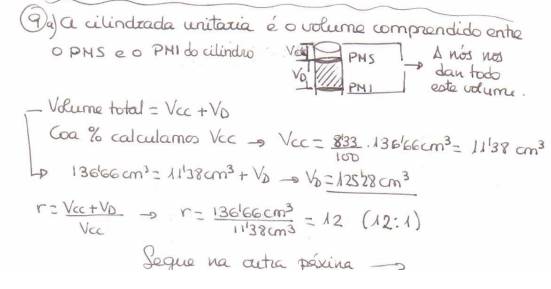 9 a) A cilindrada unitaria é o volume comprendido entre
o PMS e o PMI do cilindro
Vcc
VD
PMS
PMI
A nós nos
dan todo
este volume.
Volume total = Vcc + VD
Coa % calculamos Vcc → Vcc = 8'33/100 · 136'66 cm³ = 11'38 cm³
136'66 cm³ = 11'38 cm³ + VD → VD = 125'28 cm³
r = Vcc + VD/Vcc → r = 136'66 cm³/11'38 cm³ = 12 (12:1)
Segue na outra páxina →